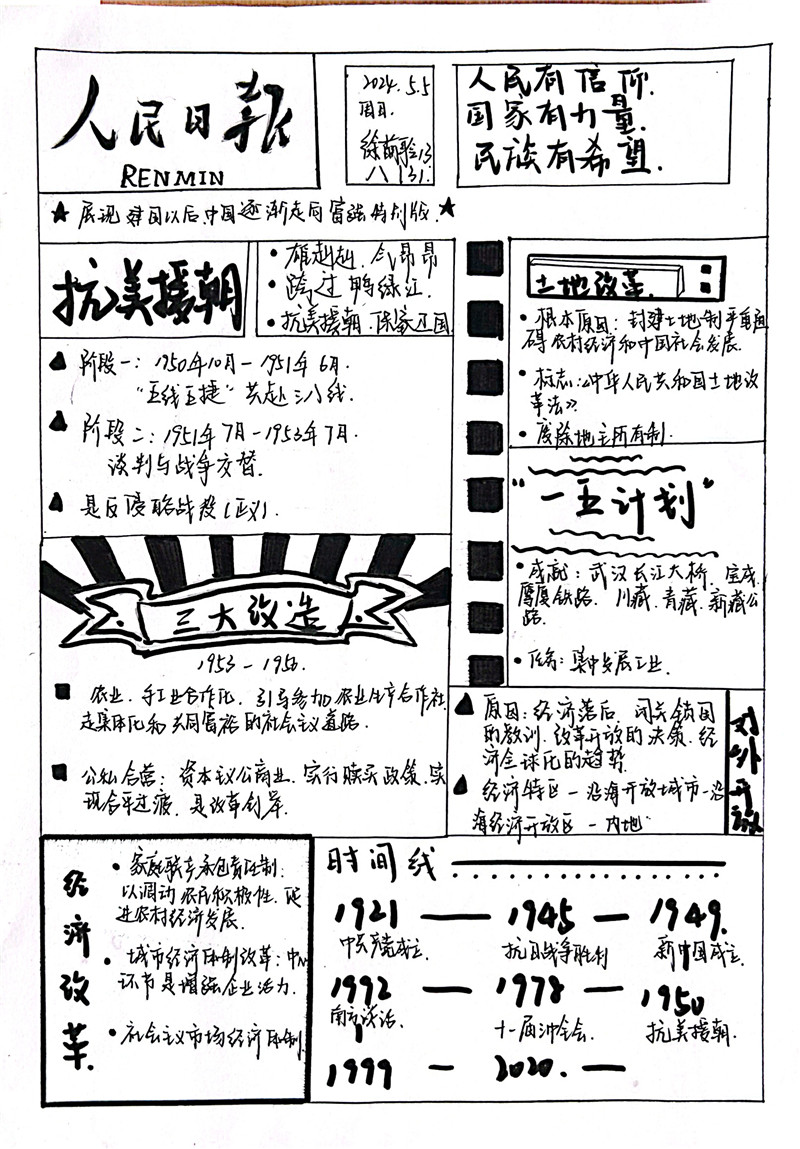 人民日報
RENMIN
2024.5.5
周日.
八(13)
人民有信仰.
国家有力量.
民族有希望.
★ 展现建国以后中国逐渐走向富强特刊版.★
抗美援朝
• 雄赳赳 气昂昂
• 跨过鸭绿江
• 抗美援朝.保家卫国
阶段一:1950年10月-1951年6月.
"五线五捷"共赴三八线.
阶段二:1951年7月-1953年7月.
谈判与战争交替.
是反侵略战役(正义).
三大改造
1953-1956.
农业、手工业合作化,引导参加农业生产合作社,
走集体化和共同富裕的社会主义道路.
公私合营:资本主义工商业,实行赎买政策,实
现合平过渡,是改革创举.
土地改革.
• 根本原因:封建土地制严重阻
碍农村经济和中国社会发展.
• 标志:《中华人民共和国土地改
革法》.
• 废除地主所有制.
"一五计划"
• 成就:武汉长江大桥、宝成、
鹰厦铁路.川藏、青藏、新藏公
路.
• 任务:集中发展工业.
对外开放
原因:经济落后、闭关锁国
的教训、改革开放的决策、经
济全球化的趋势.
经济特区-沿海开放城市-沿
海经济开放区-内地
经济改革.
• 家庭联产承包责任制:
以调动农民积极性,促
进农村经济发展.
• 城市经济体制改革:中心
环节是增强企业活力.
• 社会主义市场经济体制.
时间线
1921 — 1945 — 1949.
中共党成立. 抗日战争胜利 新中国成立.
1992 — 1978 — 1950
南方谈话. 十一届三中全会. 抗美援朝.
1999 — 2020. —